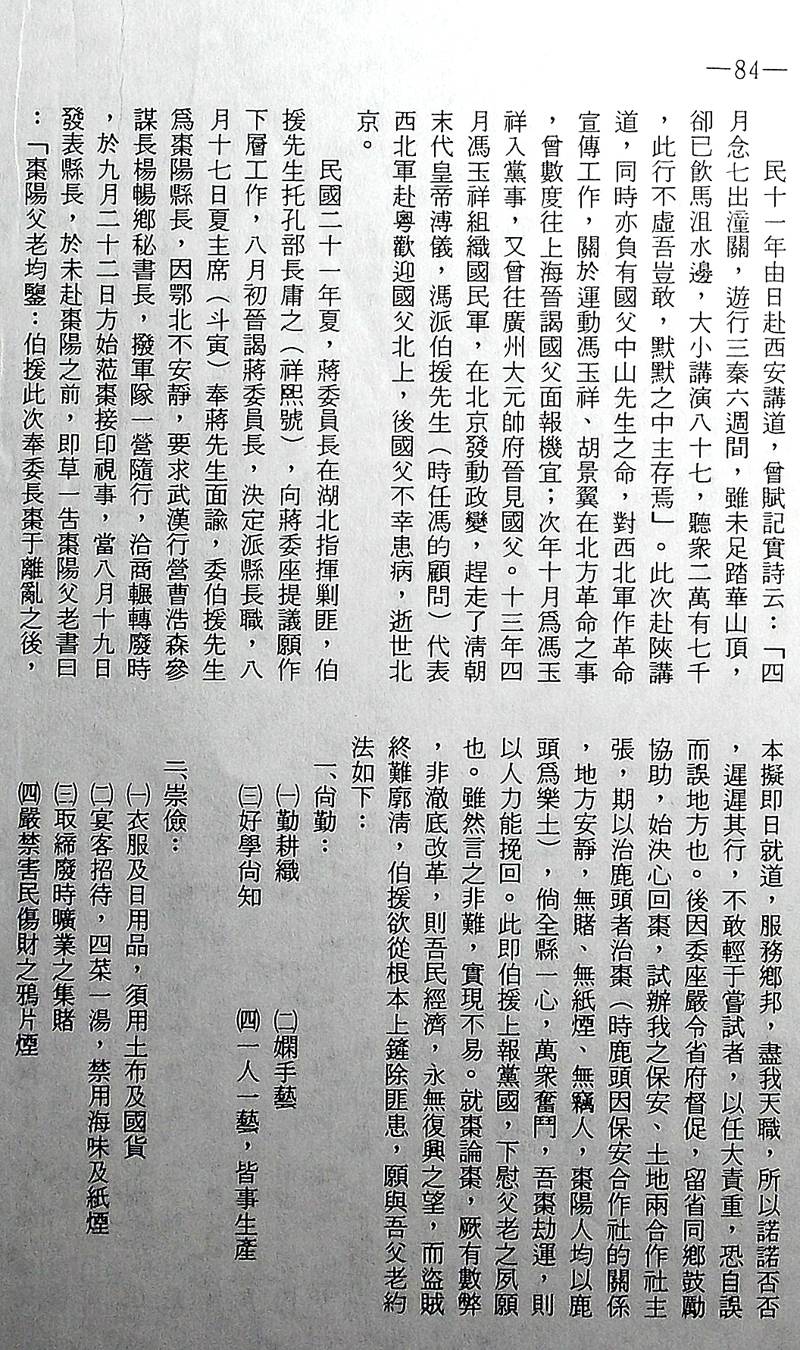 —84—
民十一年由日赴西安講道，曾賦記實詩云：「四
月念七出潼關，遊行三秦六週間，雖未足踏華山頂，
卻已飲馬沮水邊，大小講演八十七，聽衆二萬有七千
，此行不虛吾豈敢，默默之中主存焉」。此次赴陝講
道，同時亦負有國父中山先生之命，對西北軍作革命
宣傳工作，關於運動馮玉祥、胡景翼在北方革命之事
，曾數度往上海晉謁國父面報機宜；次年十月爲馮玉
祥入黨事，又曾往廣州大元帥府晉見國父。十三年四
月馮玉祥組織國民軍，在北京發動政變，趕走了淸朝
末代皇帝溥儀，馮派伯援先生（時任馮的顧問）代表
西北軍赴粵歡迎國父北上，後國父不幸患病，逝世北
京。
民國二十一年夏，蔣委員長在湖北指揮剿匪，伯
援先生托孔部長庸之（祥熙號），向蔣委座提議願作
下層工作，八月初晉謁蔣委員長，決定派縣長職，八
月十七日夏主席（斗寅）奉蔣先生面諭，委伯援先生
爲棗陽縣長，因鄂北不安靜，要求武漢行營曹浩森參
謀長楊暢鄉秘書長，撥軍隊一營隨行，洽商輾轉廢時
，於九月二十二日方始蒞棗接印視事，當八月十九日
發表縣長，於未赴棗陽之前，即草一吿棗陽父老書曰
：「棗陽父老均鑒：伯援此次奉委長棗于離亂之後，
本擬即日就道，服務鄉邦，盡我天職，所以諾諾否否
，遲遲其行，不敢輕于嘗試者，以任大責重，恐自誤
而誤地方也。後因委座嚴令省府督促，留省同鄉鼓勵
協助，始決心回棗，試辦我之保安、土地兩合作社主
張，期以治鹿頭者治棗（時鹿頭因保安合作社的關係
，地方安靜，無賭、無紙煙、無竊人，棗陽人均以鹿
頭爲樂土），倘全縣一心，萬衆奮鬥，吾棗劫運，則
以人力能挽回。此即伯援上報黨國，下慰父老之夙願
也。雖然言之非難，實現不易。就棗論棗，厥有數弊
，非澈底改革，則吾民經濟，永無復興之望，而盜賊
終難廓淸，伯援欲從根本上鏟除匪患，願與吾父老約
法如下：
一、尙勤：
㈠勤耕織　㈡嫻手藝
㈢好學尙知　㈣一人一藝，皆事生產
二、崇儉：
㈠衣服及日用品，須用土布及國貨
㈡宴客招待，四菜一湯，禁用海味及紙煙
㈢取締廢時曠業之集賭
㈣嚴禁害民傷財之鴉片煙